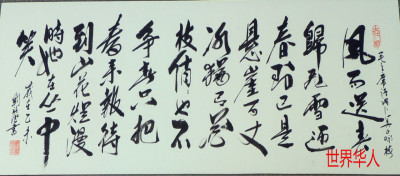 毛主席诗词卜算子咏梅
風雨送春
歸飛雪迎
春到已是
悬崖百丈
冰猶有花
枝俏也不
争春只把
春来報待
到山花爛漫
時她在丛中
笑
乙未
世界华人